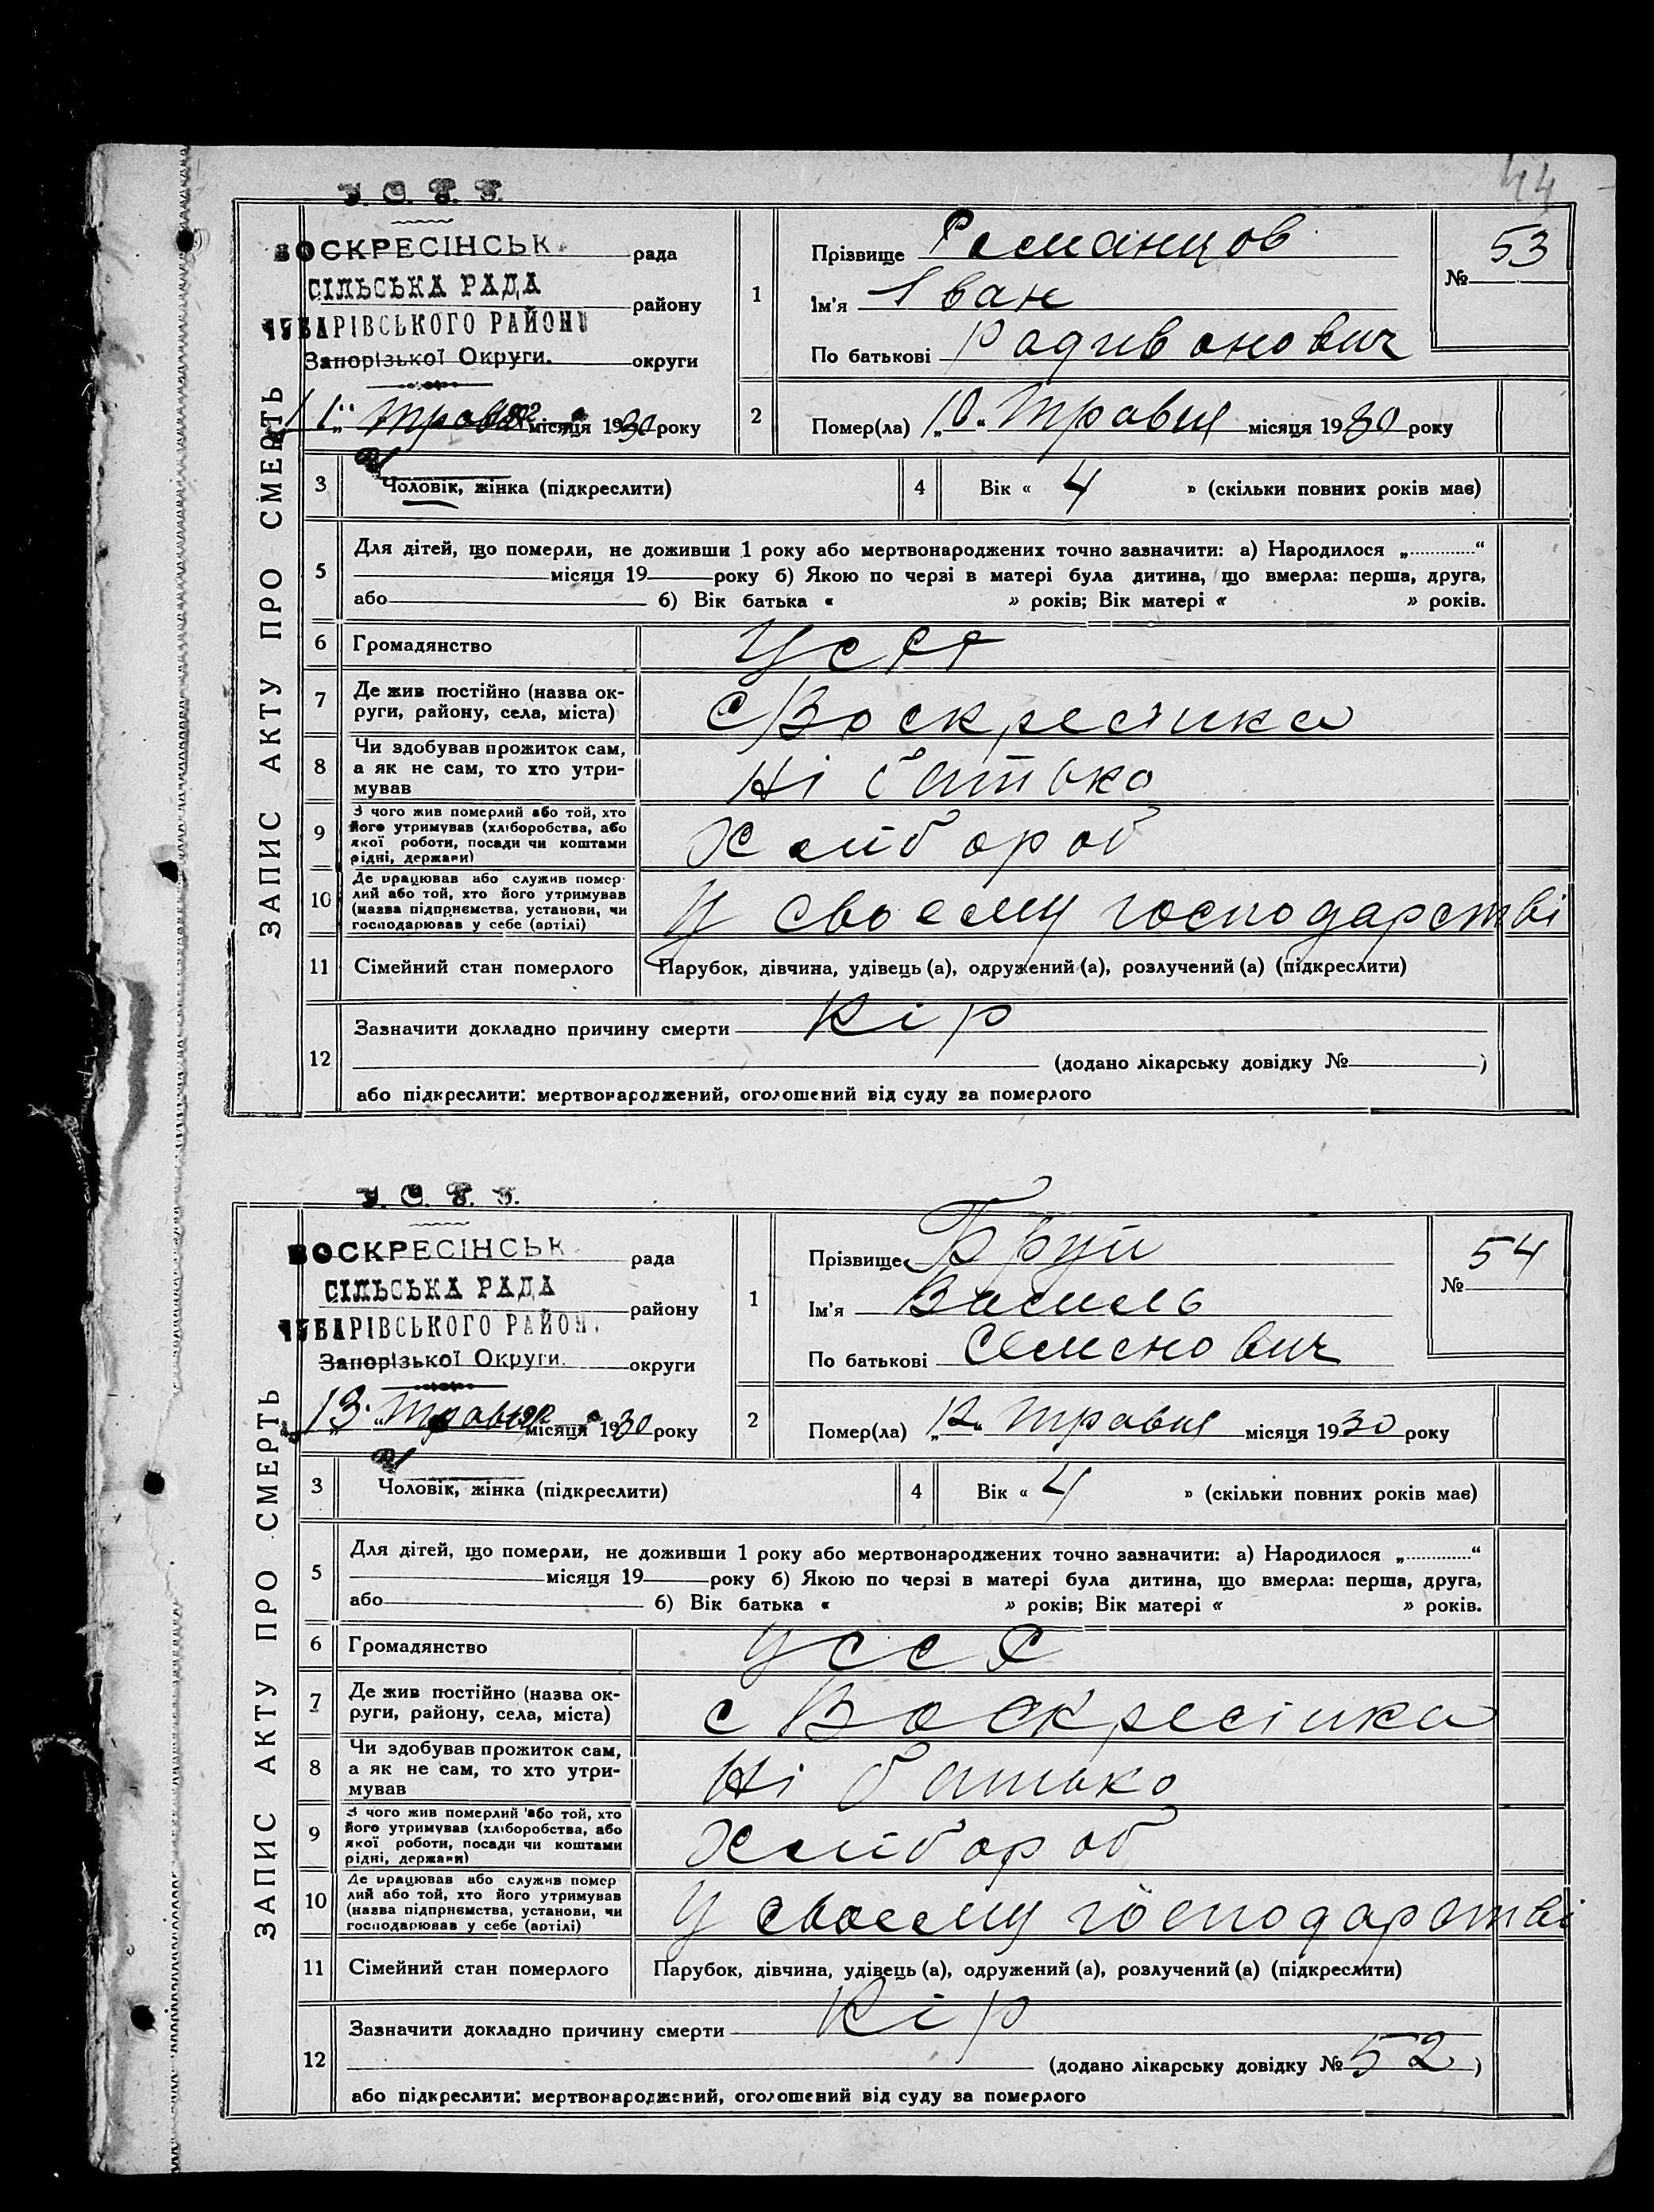 44
У. С. Р. Р.
ВОСКРЕСІНСЬК рада
СІЛЬСЬКА РАДА району
ЧУБАРІВСЬКОГО РАЙОНУ
Запорізької Округи. округи
„11“ Травня місяця 1930 року
ЗАПИС АКТУ ПРО СМЕРТЬ
1
Прізвище Романцов
Ім'я Іван
По батькові Радивонович
№ 53
2
Помер(ла) „10“ Травня місяця 1930 року
3 Чоловік, жінка (підкреслити)
4 Вік « 4 » (скільки повних років має)
5 Для дітей, що померли, не доживши 1 року або мертвонароджених точно зазначити: а) Народилося „............“
місяця 19 року б) Якою по черзі в матері була дитина, що вмерла: перша, друга,
або б) Вік батька « » років; Вік матері « » років.
6 Громадянство УСРР
7 Де жив постійно (назва ок-
руги, району, села, міста) с Воскресінка
8 Чи здобував прожиток сам,
а як не сам, то хто утри-
мував Ні батько
9 З чого жив померлий або той, хто
його утримував (хліборобства, або
якої роботи, посади чи коштами
рідні, держави) Хлібороб
10 Де працював або служив помер-
лий або той, хто його утримував
(назва підприємства, установи, чи
господарював у себе (артілі) У своєму господарстві
11 Сімейний стан померлого Парубок, дівчина, удівець (а), одружений (а), розлучений (а) (підкреслити)
12 Зазначити докладно причину смерти Кір
(додано лікарську довідку № )
або підкреслити: мертвонароджений, оголошений від суду за померлого
У. С. Р. Р.
ВОСКРЕСІНСЬК рада
СІЛЬСЬКА РАДА району
ЧУБАРІВСЬКОГО РАЙОНУ
Запорізької Округи. округи
„13“ Травня місяця 1930 року
ЗАПИС АКТУ ПРО СМЕРТЬ
1
Прізвище Бруй
Ім'я Василь
По батькові Семенович
№ 54
2
Помер(ла) „12“ Травня місяця 1930 року
3 Чоловік, жінка (підкреслити)
4 Вік « 4 » (скільки повних років має)
5 Для дітей, що померли, не доживши 1 року або мертвонароджених точно зазначити: а) Народилося „............“
місяця 19 року б) Якою по черзі в матері була дитина, що вмерла: перша, друга,
або б) Вік батька « » років; Вік матері « » років.
6 Громадянство УССР
7 Де жив постійно (назва ок-
руги, району, села, міста) с Воскресінка
8 Чи здобував прожиток сам,
а як не сам, то хто утри-
мував Ні батько
9 З чого жив померлий або той, хто
його утримував (хліборобства, або
якої роботи, посади чи коштами
рідні, держави) Хлібороб
10 Де працював або служив помер
лий або той, хто його утримував
(назва підприємства, установи, чи
господарював у себе (артілі) У своєму господарстві
11 Сімейний стан померлого Парубок, дівчина, удівець (а), одружений (а), розлучений (а) (підкреслити)
12 Зазначити докладно причину смерти Кір
(додано лікарську довідку № 52 )
або підкреслити: мертвонароджений, оголошений від суду за померлого